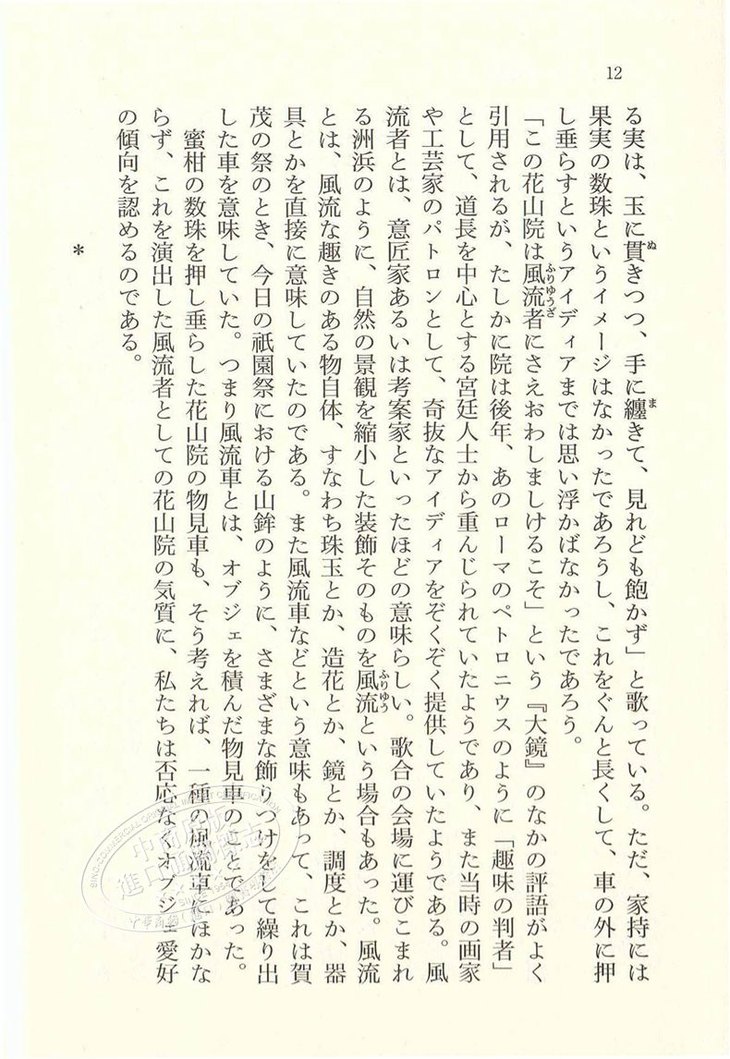 12
る実は、玉に貫きつつ、手に纏きて、見れども飽かず」と歌っている。ただ、家持には
果実の数珠というイメージはなかったであろうし、これをぐんと長くして、車の外に押
し垂らすというアイディアまでは思い浮かばなかったであろう。
「この花山院は風流者にさえおわしましけるこそ」という『大鏡』のなかの評語がよく
引用されるが、たしかに院は後年、あのローマのペトロニウスのように「趣味の判者」
として、道長を中心とする宮廷人士から重んじられていたようであり、また当時の画家
や工芸家のパトロンとして、奇抜なアイディアをぞくぞく提供していたようである。風
流者とは、意匠家あるいは考案家といったほどの意味らしい。歌合の会場に運びこまれ
る洲浜のように、自然の景観を縮小した装飾そのものを風流という場合もあった。風流
とは、風流な趣きのある物自体、すなわち珠玉とか、造花とか、鏡とか、調度とか、器
具とかを直接に意味していたのである。また風流車などという意味もあって、これは賀
茂の祭のとき、今日の祇園祭における山鉾のように、さまざまな飾りつけをして繰り出
した車を意味していた。つまり風流車とは、オブジェを積んだ物見車のことであった。
蜜柑の数珠を押し垂らした花山院の物見車も、そう考えれば、一種の風流車にほかな
らず、これを演出した風流者としての花山院の気質に、私たちは否応なくオブジェ愛好
の傾向を認めるのである。
*